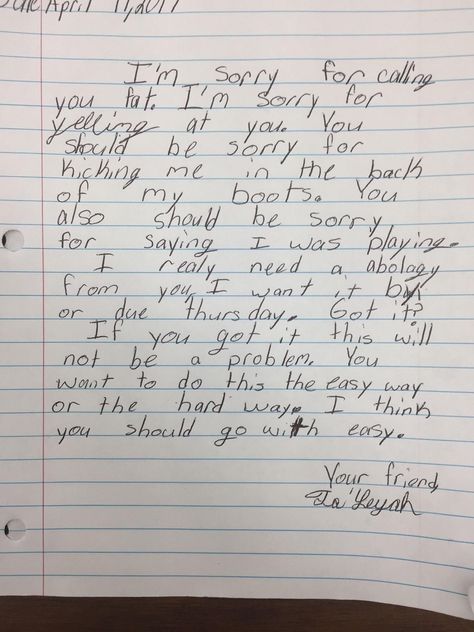 Date April 11, 2017
I'm sorry for calling
you fat. I'm sorry for
yelling at you. You
should be sorry for
kicking me in the back
of my boots. You
also should be sorry
for saying I was playing.
I realy need a abology
from you, I want it by
or due thursday. Got it?
If you got it this will
not be a problem. You
want to do this the easy way
or the hard way. I think
you should go with easy.
Your friend,
Ja'Leyah